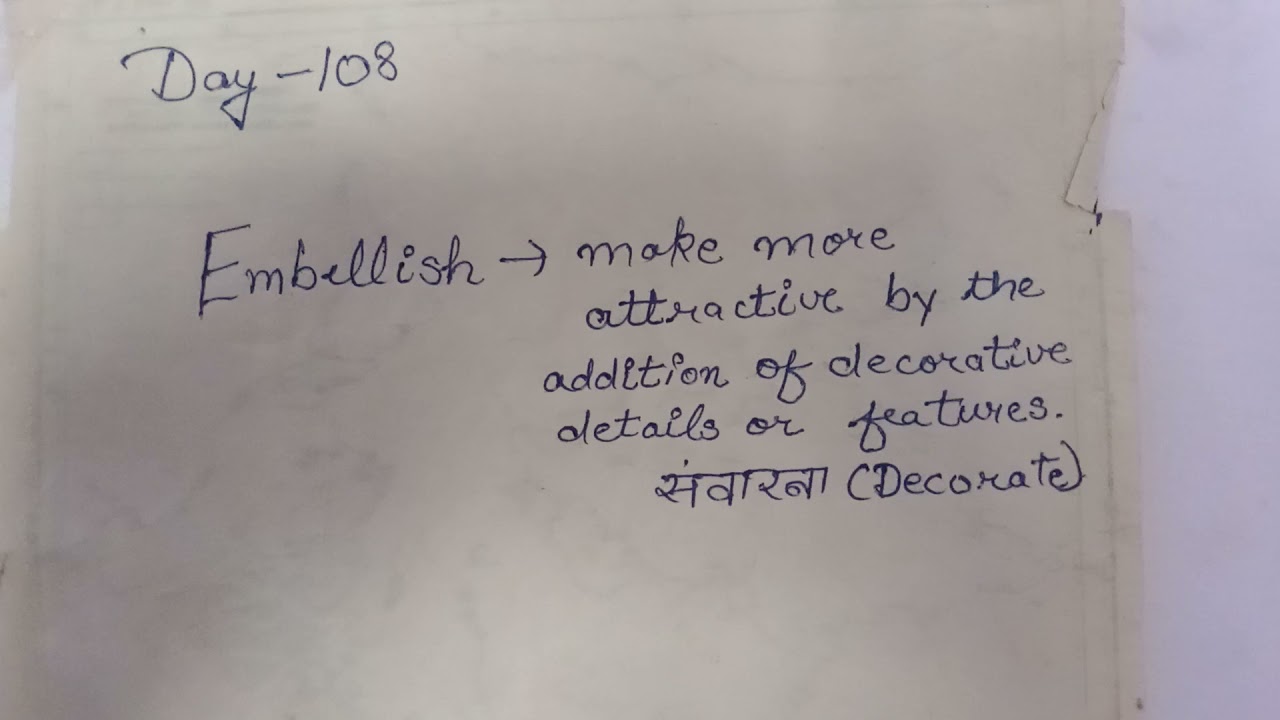 Day - 108
Embellish → make more
attractive by the
addition of decorative
details or features.
संवारना (Decorate)